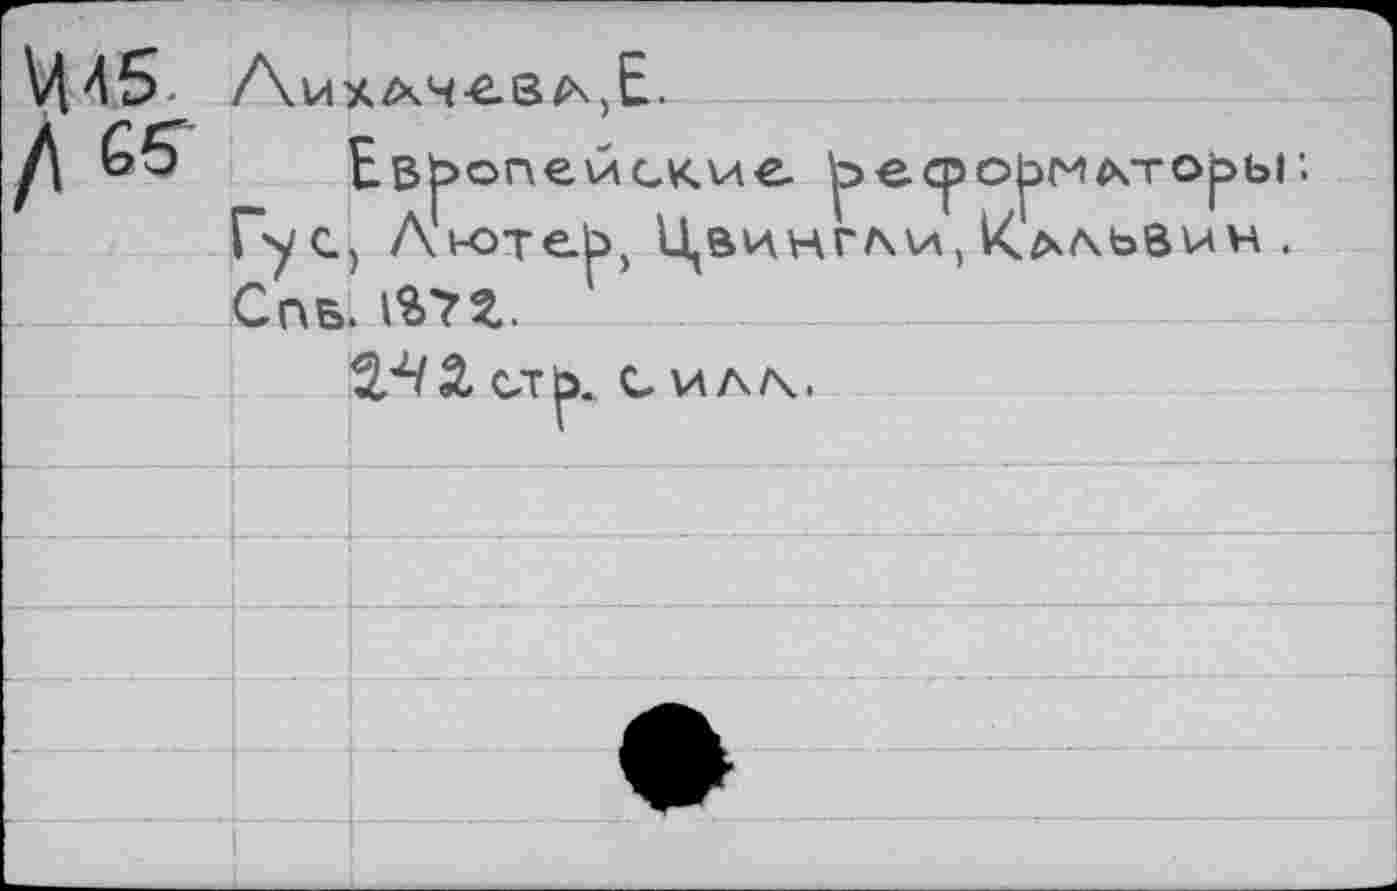 И15 Лихачева, Е.
Л 65 Европейские реформаторы:
Гус, Лютер, Цвингли, Кальвин.
Спб. 1872.
242 стр. с илл.